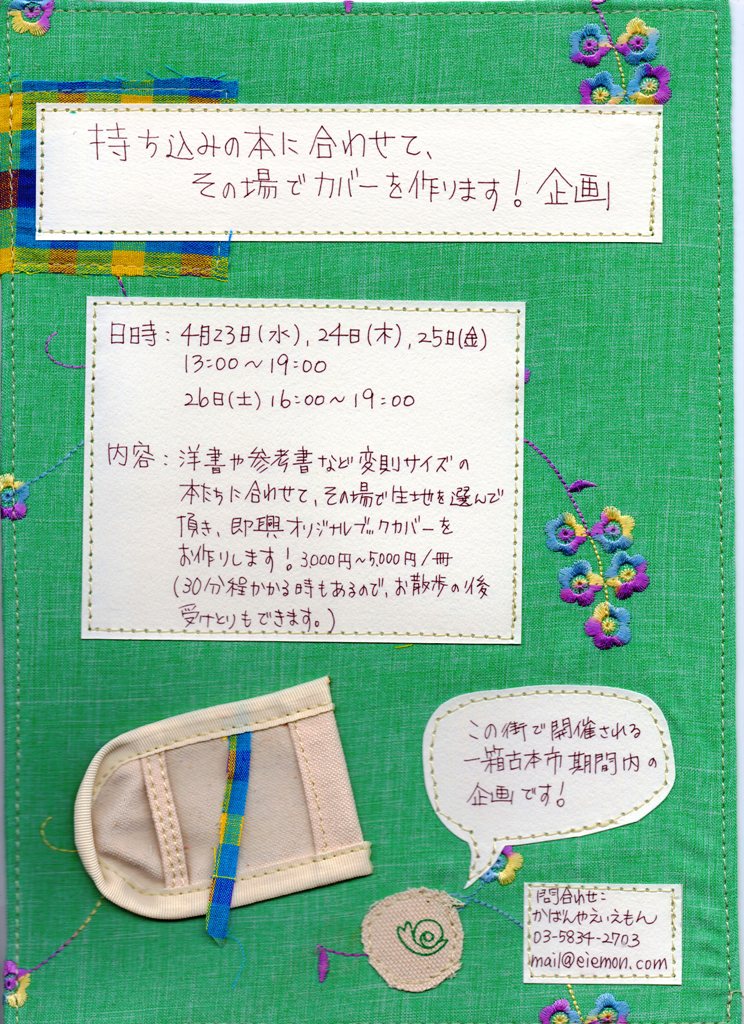 持ち込みの本に合わせて、
その場でカバーを作ります！企画
日時：4月23日(水),24日(木),25日(金)
13:00～19:00
26日(土)16:00～19:00
内容：洋書や参考書など変則サイズの
本たちに合わせて、その場で生地を選んで
頂き、即興オリジナルブックカバーを
お作りします！3,000円～5,000円/冊
(30分程かかる時もあるので、お散歩の後
受けとりもできます。)
この街で開催される
一箱古本市期間内の
企画です！
問合わせ：
かばんやえいえもん
03-5834-2703
mail@eiemon.com